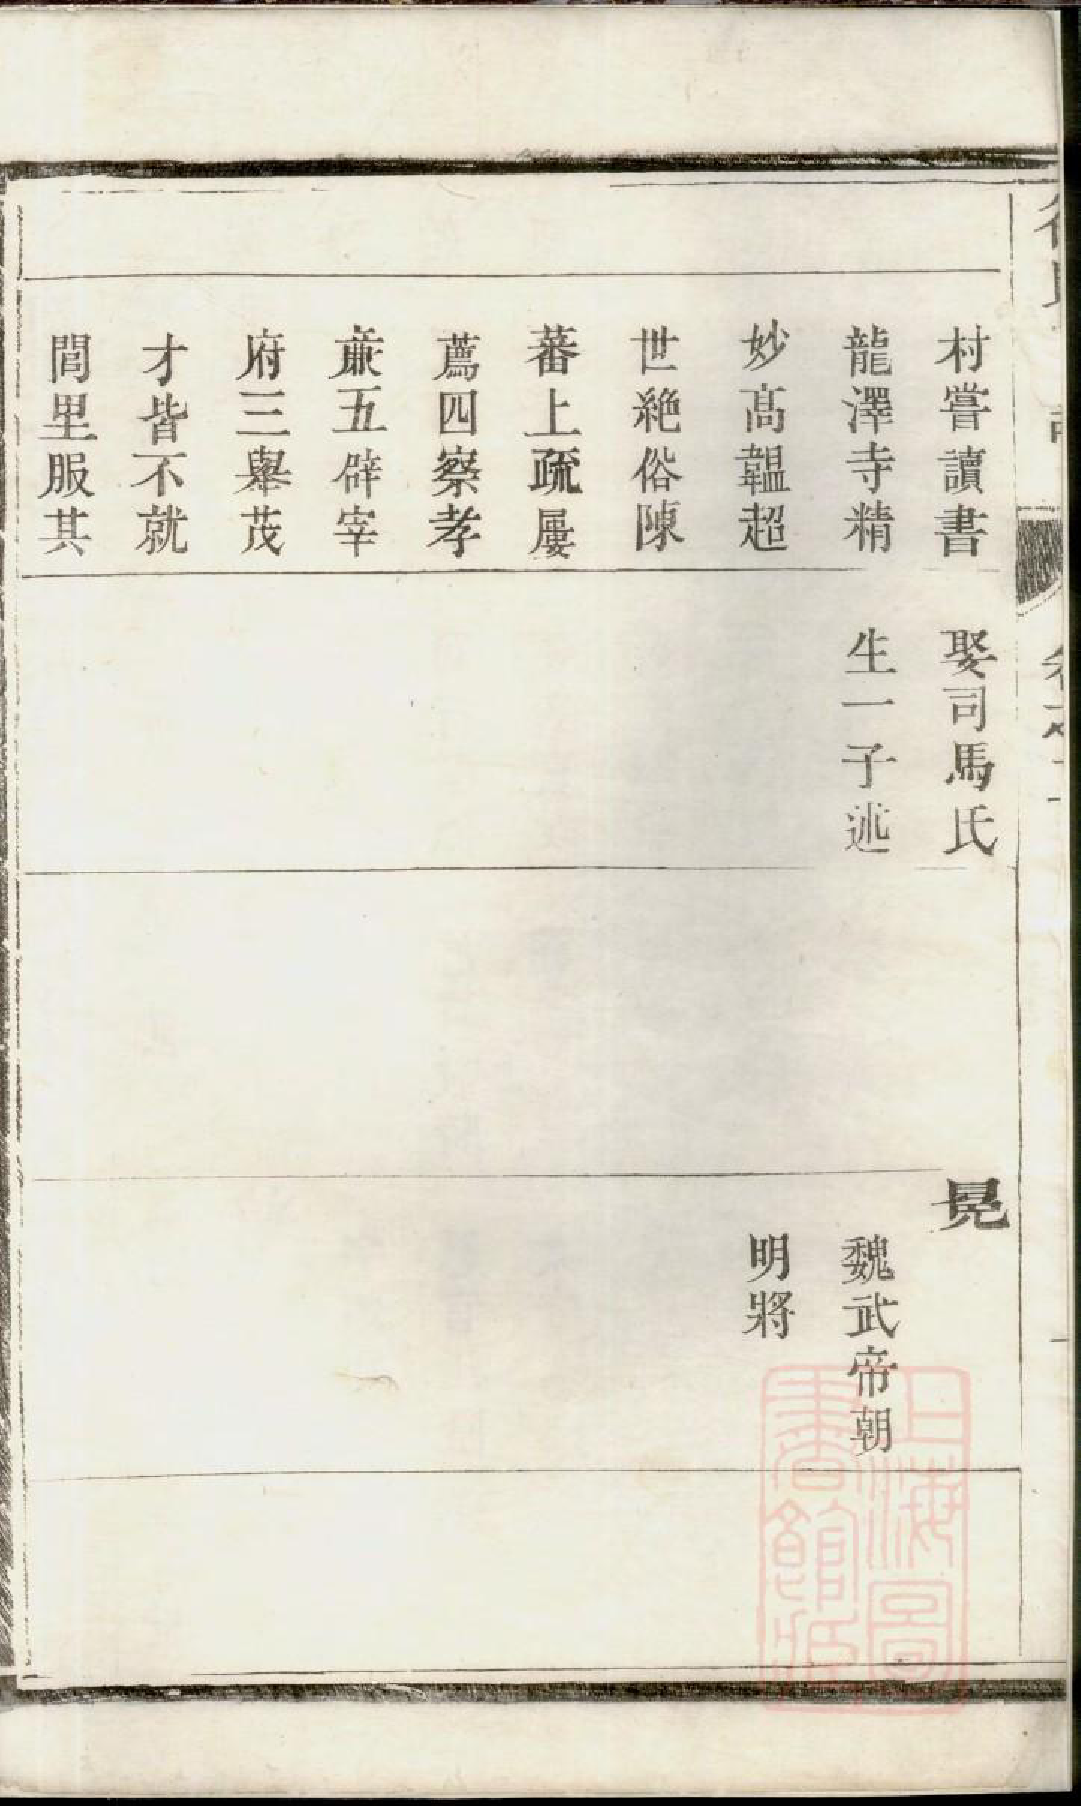 村嘗讀書
龍澤寺精
妙髙韞超
世絶俗陳
蕃上疏屢
薦四察孝
亷五辟宰
府三舉茂
才皆不就
閭里服其
娶司馬氏
生一子述
晃
魏武帝朝
明將
上海圖
書館藏